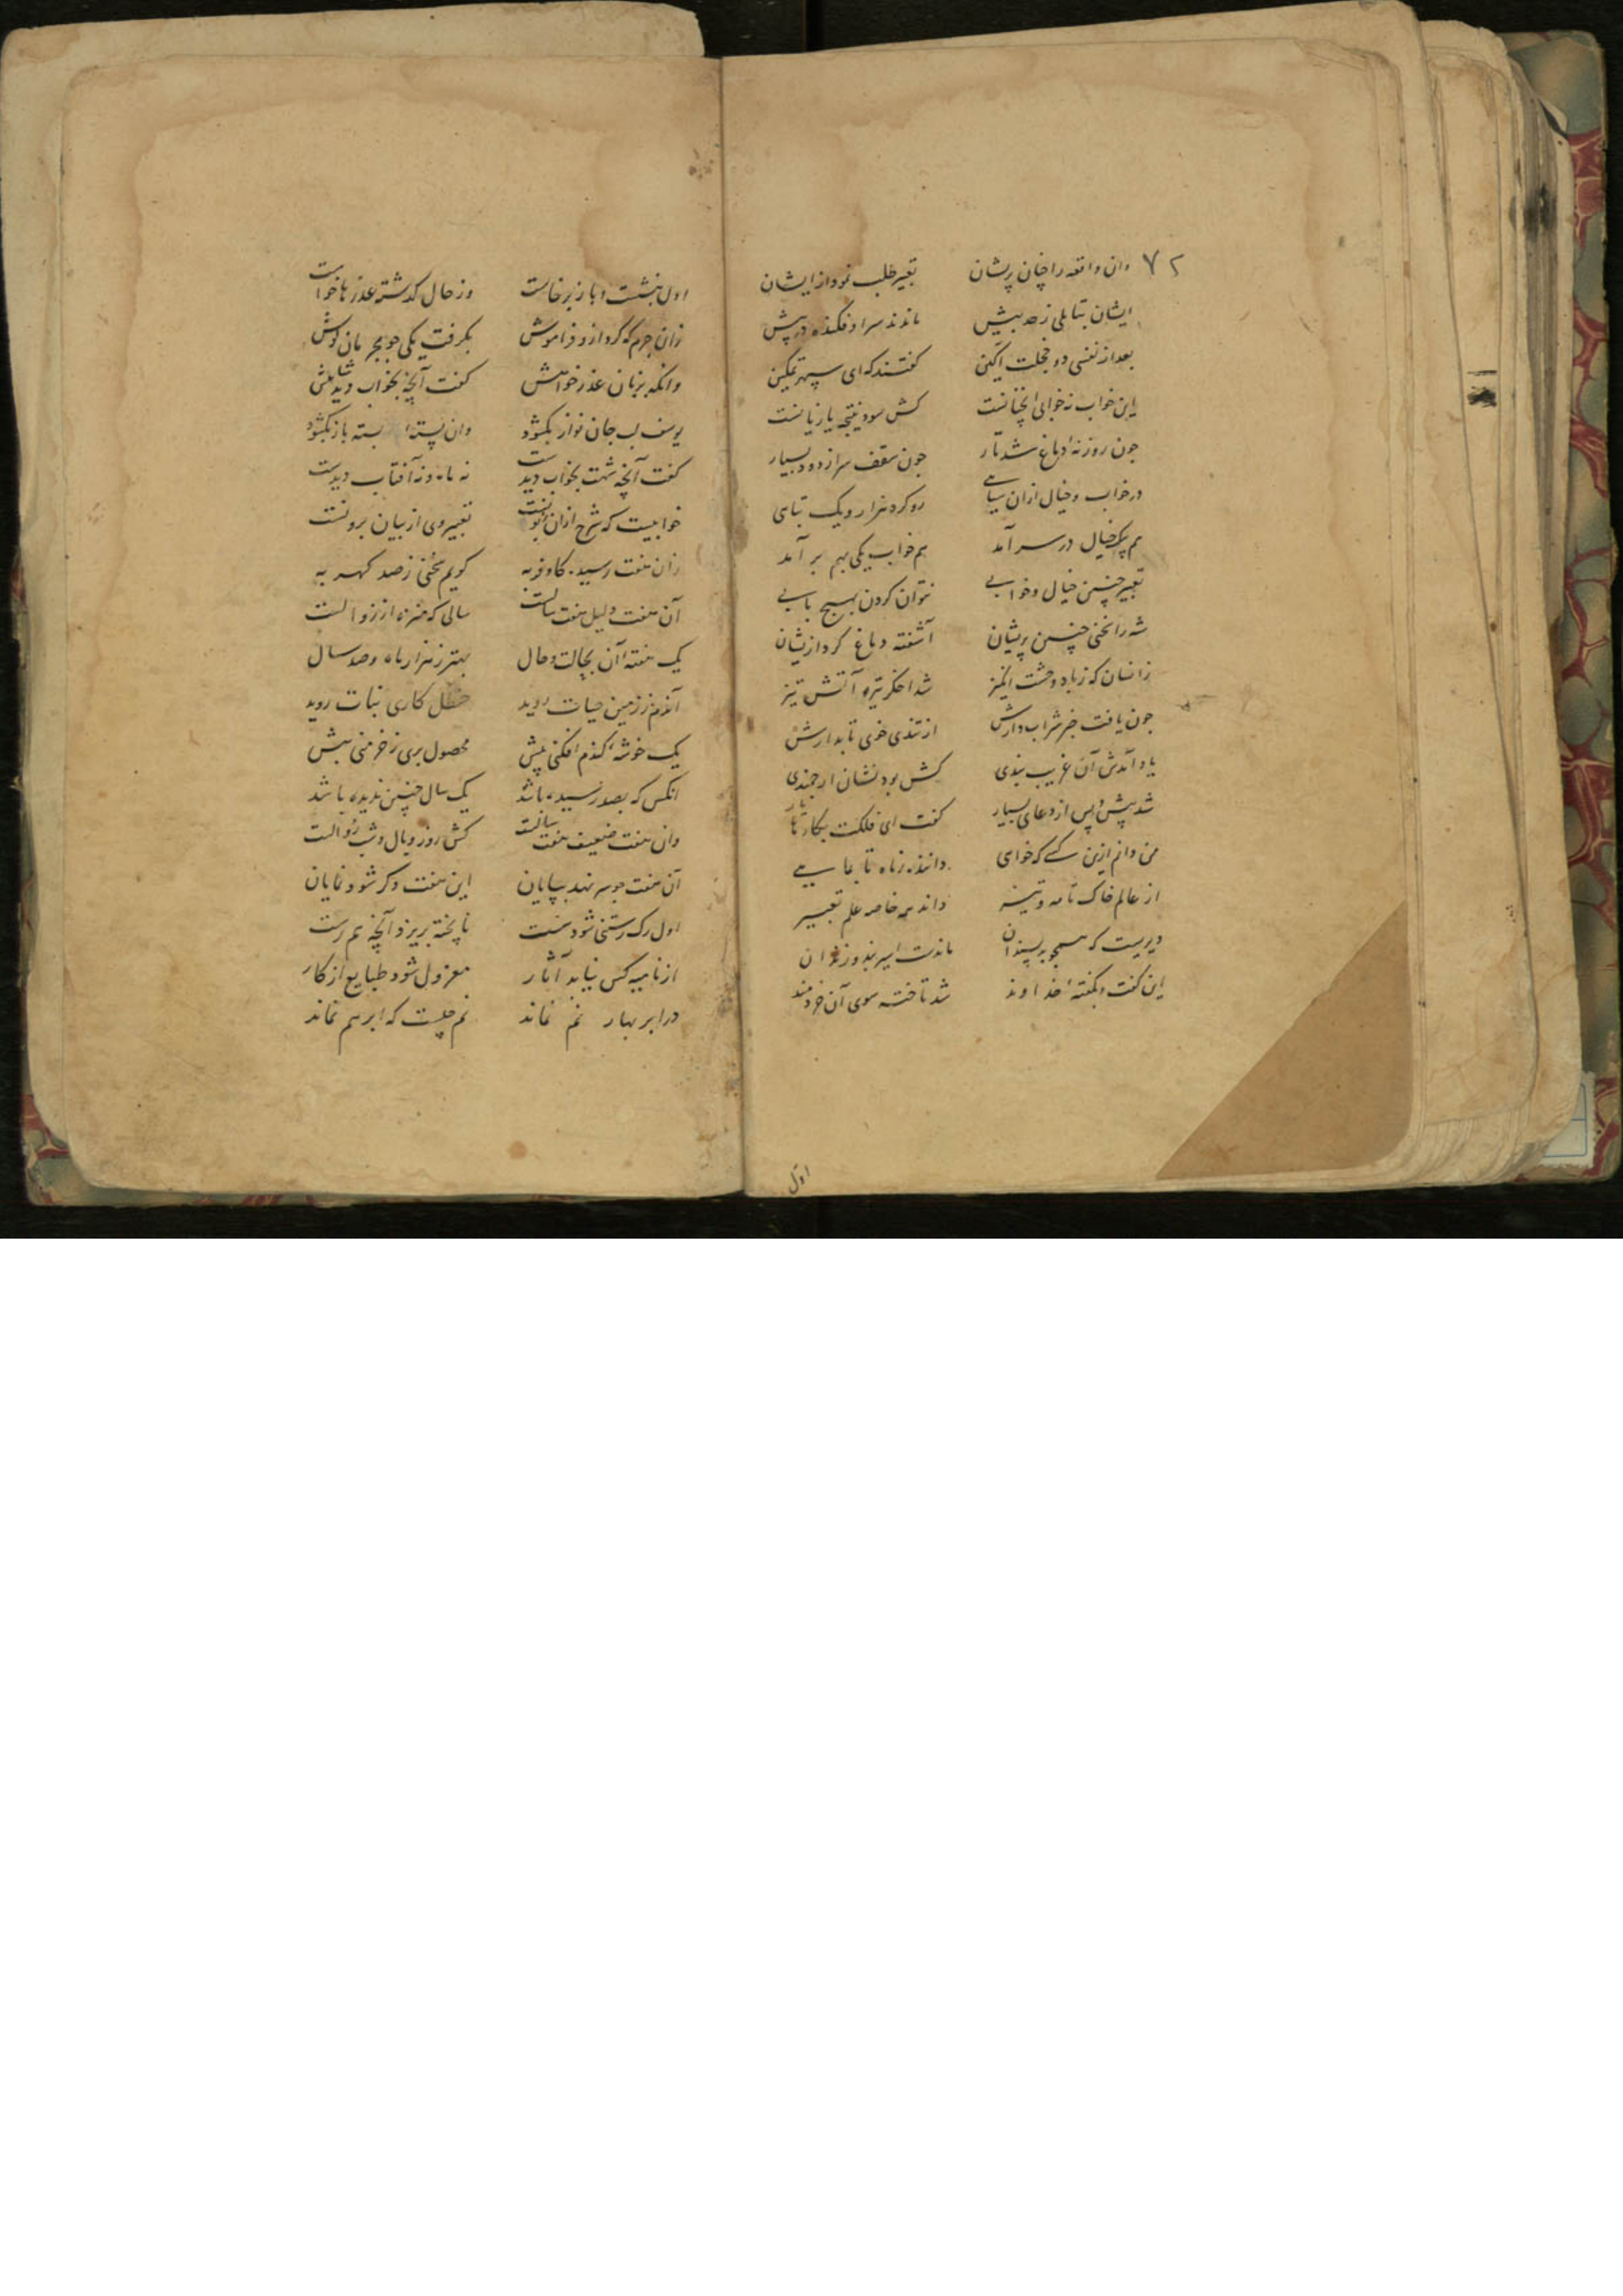 ۷۲ وان واقعه را چنان پریشان تعبیر طلب نمود از ایشان
ایشان بتاملی ز حد بیش ماندند سر اوفکنده در پیش
بعد از نفسی دو خجلت آکین کفتند که ای سپهر تمکین
این خواب نه خوابی آنچنانست کش سود نتیجه یا زیانست
چون روزنهٔ دماغ شد تار چون سقف سر از دود بسیار
در خواب و خیال ازان سیاهی رو کرد هزار و یک تباهی
هم یک خیال در سر آمد هم خواب یکی بهم بر آمد
تعبیر چنین خیال و خوابی نتوان کردن بهیچ بابی
شه را سخنی چنین پریشان آشفته دماغ کرد ازیشان
زانسان که ز باد وحشت انگیز شد اخکر تیره آتش تیز
چون یافت خبر شرابدارش از تندی خوی تابدارش
یاد آمدش آن غریب بندی کش بود نشان ارجمندی
شد پیش و پس از دعای بسیار کفت ای فلکت بکارها یار
من دانم ازین کسی که خواهی داننده ز ماه تا بماهی
از عالم خاک تا مه و تیر داند همه خاصه علم تعبیر
دیریست که هیچو بر سپندان ماندست اسیر بند و زندان
این کفت و بکفتهٔ خداوند شد تاخته سوی آن خردمند
اول
اول بنشست و باز برخاست وز حال کذشته عذرها خواست
زان جرم که کرد ازو فراموش بکرفت یکی چو مجرمان کوش
وانکه بزبان عذر خواهش کفت آنچه بخواب دید شاهش
یوسف لب جان نواز بکشود وان پستهٔ بسته باز بکشود
کفت آنچه شهت بخواب دیدست نه ماه و نه آفتاب دیدست
خوابیست که شرح ازان فزونست تعبیر وی از بیان برونست
زان هفت رسیده کاو فربه کویم سخنی ز صد کهر به
آن هفت دلیل هفت سالست سالی که منزه از زوالست
یک هفتهٔ آن بحالت و حال بهتر ز هزار ماه و صد سال
آندم ز زمین حیات روید حنظل کاری نبات روید
یک خوشهٔ کندم افکنی پیش محصول بری ز خرمنی بیش
انکس که بصد رسیده باشد یک سال چنین ندیده باشد
وان هفت ضعیف هفت سالست کش روز وبال و شب زوالست
آن هفت چو سر نهد بپایان این هفت دکر شود نمایان
اول رک رستنی شود سست ناپخته بریزد آنچه هم رست
از نامیه کس نیابد آثار معزول شود طبایع از کار
در ابر بهار نم نماند نم چیست که ابر هم نماند